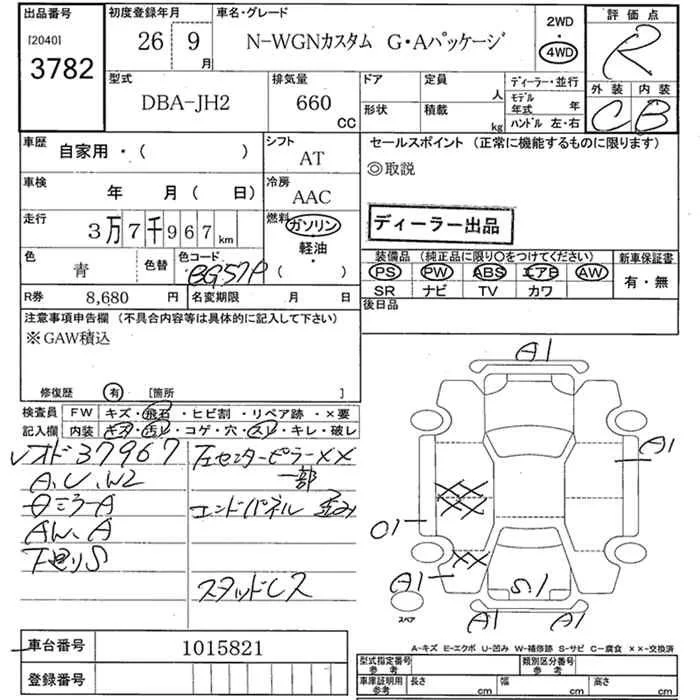 出品番号
[2040]
3782
初度登録年月
26 9月
車名・グレード
N-WGNカスタム G・Aパッケージ
2WD
・
4WD
評価点
R
外装 内装
C B
型式
DBA-JH2
排気量
660
CC
ドア
形状
定員
人
積載
kg
ディーラー・並行
モデル年式 年
ハンドル 左・右
車歴
自家用・( )
シフト
AT
車検
年 月( 日)
冷房
AAC
走行
3万7千967km
燃料
ガソリン
軽油・
( )
色
青
色替
色コード
BG57P
R券 8,680 円
名変期限 月 日
セールスポイント (正常に機能するものに限ります)
◎取説
ディーラー出品
装備品 (純正品に限り○をつけてください)
PS PW ABS エアB AW
SR ナビ TV カワ
新車保証書
有・無
後日品
注意事項申告欄 (不具合内容等は具体的に記入して下さい)
※GAW積込
修復歴 有 [箇所 ]
検査員
記入欄
FW キズ・飛石・ヒビ割・リペア跡・×要
内装 キズ・汚レ・コゲ・穴・スレ・キレ・破レ
レオド37967
A、U、W2
ミラーA
AW、A
下廻りS
左センターピラーXX
一部
エンドパネル 歪み
スタッドレス
A1
A1
XX
XX
O1
XX
A1
S1
A1 A1
スペア
A-キズ E-エクボ U-凹み W-補修跡 S-サビ C-腐食 ××-交換済
車台番号 1015821
登録番号
型式指定番号
参考
類別区分番号
参考
車庫証明用
参考
長さ cm 幅 cm 高さ cm